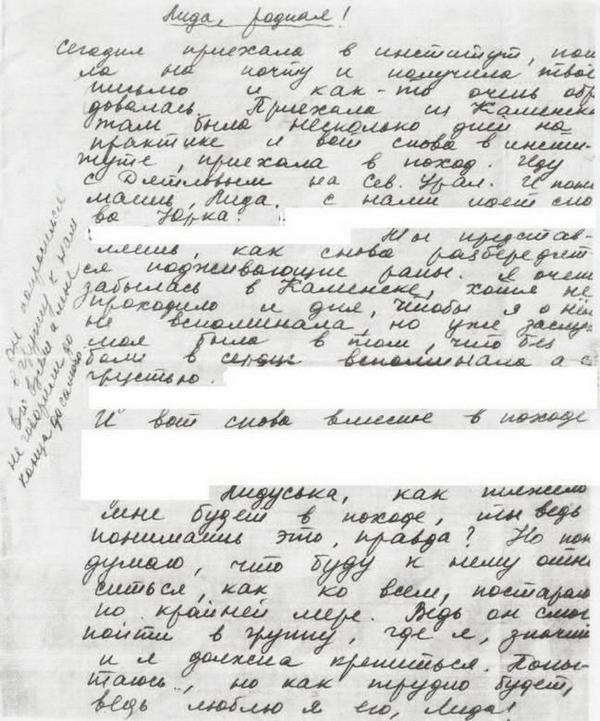 Лида, родная!
Сегодня приехала в институт, пош
ла на почту и получила твоё
письмо и как-то очень обр
довалась. Приехала из Каменска
там была несколько дней на
практике и вот снова в инсти-
туте, приехала в поход. Иду
с Дятловым на Сев. Урал. И пони
маешь, Лида, с нами идет сно
ва Юрка.
Ты представ-
ляешь, как снова разбередят
ся подживающие раны. Я очен
забылась в Каменске, хотя не
проходило и дня, чтобы я о нём
не вспоминала, но уже заслу
моя была в том, что без
боли в сердце вспоминала а с
грустью.
И вот снова вместе в походе
Лидуська, как тяжело
мне будет в походе, ты ведь
понимаешь это, правда? Но пон
думаю, что буду к нему отно
ситься, как ко всем, постараю
по крайней мере. Ведь он смог
пойти в группу, где я, значит
и я должна крепиться. Попы-
таюсь, но как трудно будет,
ведь люблю я его, Лида!
он напросился
в группу к нам
Вот будет а мне
не говорили до
конца до самого